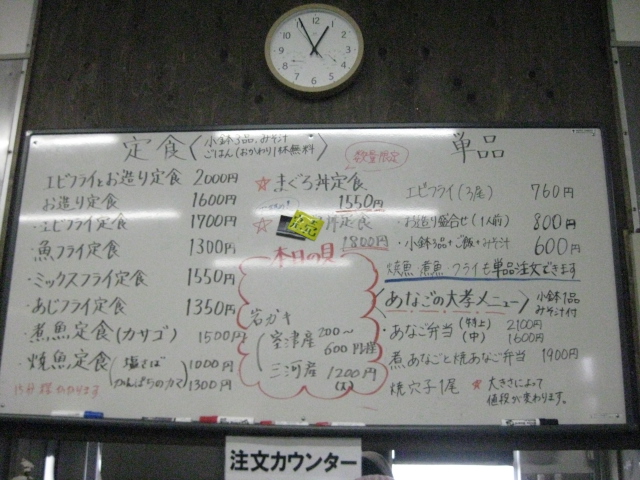 定食 小鉢3品、みそ汁
ごはん(おかわり1杯無料)
エビフライとお造り定食 2000円
お造り定食 1600円
・エビフライ定食 1700円
・魚フライ定食 1300円
・ミックスフライ定食 1550円
・あじフライ定食 1350円
・煮魚定食(カサゴ) 1500円
・焼魚定食(塩さば 1000円
かんぱちのカマ) 1300円
15分程かかります
数量限定
☆まぐろ丼定食
1550円
☆ 丼定食
完売
1800円
本日の貝
岩ガキ
室津産 200〜
600円/座
三河産 1200円
(大)
単品
エビフライ(3尾) 760円
・お造り盛合せ(1人前) 800円
・小鉢3品・ご飯・みそ汁 600円
焼魚 煮魚 フライも単品注文できます
あなごの大孝メニュー 小鉢1品
みそ汁付
・あなご弁当(特上) 2100円
(中) 1600円
煮あなごと焼あなご弁当 1900円
焼穴子1尾 ☆大きさによって
値段が変わります。
注文カウンター
12
1
2
3
4
5
6
7
8
9
10
11